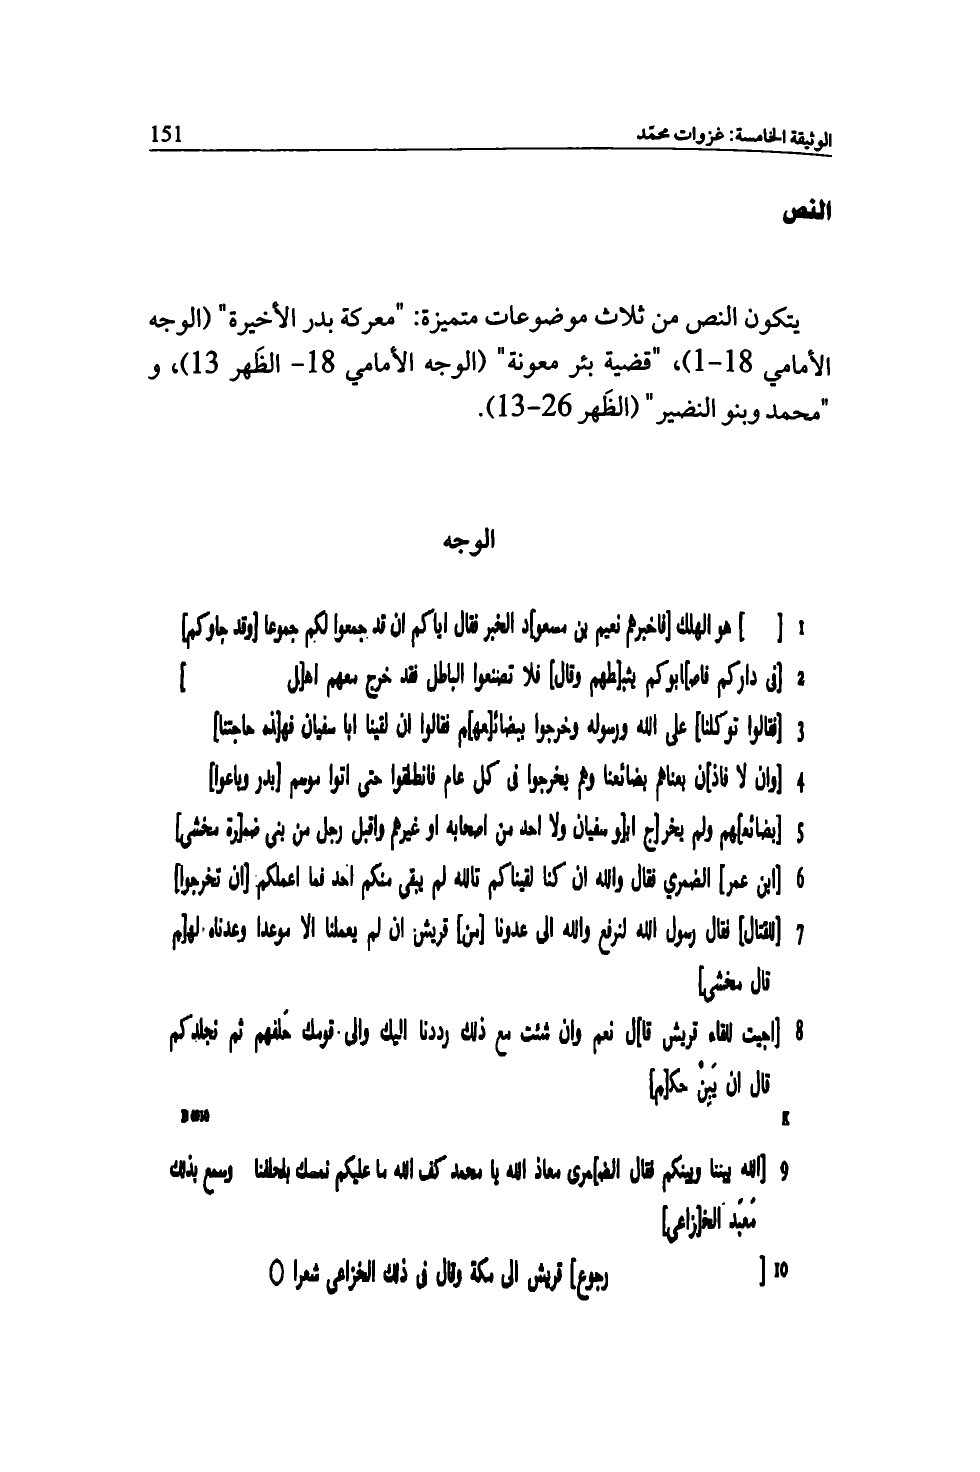 الوثيقة الخامسة: غزوات محمّد 151
النص
يتكون النص من ثلاث موضوعات متميزة: "معركة بدر الأخيرة" (الوجه
الأمامي 18-1)، "قضية بئر معونة" (الوجه الأمامي 18- الظَهر 13)، و
"محمد وبنو النضير" (الظَهر 26-13).
الوجه
1 [ ] هو الهلك [فاخبرهم نعيم بن مسعو]د الخبر فقال اياكم ان قد جمعوا لكم جموعا [وقد جاوكم]
2 [فى داركم فاصا]ابوكم يثب[طهم وقال] فلا تصنعوا الباطل فقد خرج معهم اه[ل ]
3 [فقالوا توكلنا] على الله ورسوله وخرجوا ببضائ[عه]م فقالوا ان لقينا ابا سفيان فه[ذه حاجتنا]
4 [وان لا فاذا]ن بعناهم بضائعنا وهم يخرجوا فى كل عام فانطلقوا حتى اتوا موسم [بدر وباعوا]
5 [بضائع]هم ولم يخر[ج اب]و سفيان ولا احد من اصحابه او غيرهم واقبل رجل من بنى ضم[رة مخشى]
6 [ابن عمر] الضمري فقال والله ان كنا لقيناكم تالله لم يبقى منكم احد فما اعملكم [ان تخرجوا]
7 [للقتال] فقال رسول الله لنرفع والله الى عدونا [من] قريش ان لم يعملنا الا موعدا وعدناه له[م
قال مخشى]
8 [اجيت للقاء قريش قا]ل نعم وان شئت مع ذلك رددنا اليك والى قومك حَلفهم ثم نجلدكم
قال ان يَبِنْ حك[م]
K
9 [الله بيننا وبينكم فقال الض]مرى معاذ الله يا محمد كف الله ما عليكم نمسك بلحلفنا وسمع بذلك
مَعبَد الخ[زاعى]
10 [ رجوع] قريش الى مكة وقال فى ذلك الخزاعى شعرا O